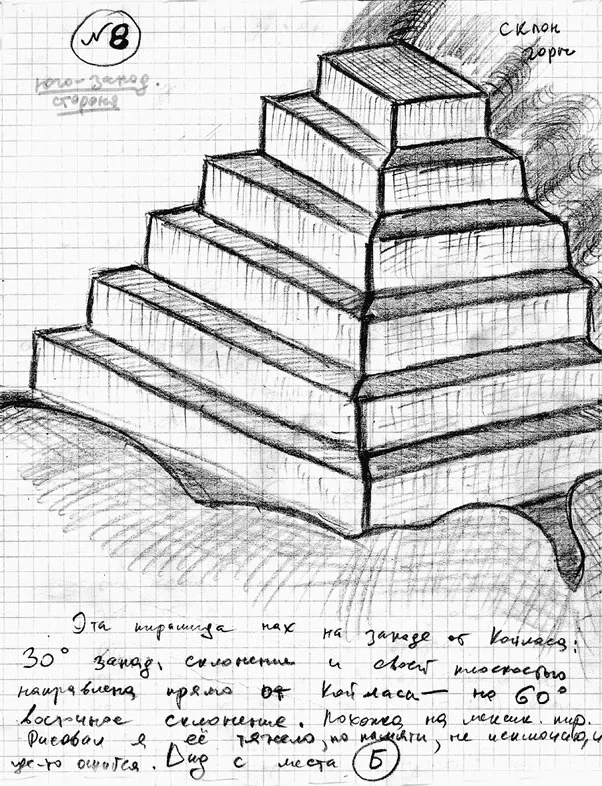 №8
склон
горы
юго-запад.
сторона
Эта пирамида нах на западе от Кайласа:
30° запад. склонение и своей плоскостью
направлена прямо от Кайласа — на 60°
восточное склонение. Похожа на мексик. пир.
Рисовал я её тяжело, по памяти, не исключаю, ч
где-то ошибся. Вид с места Б